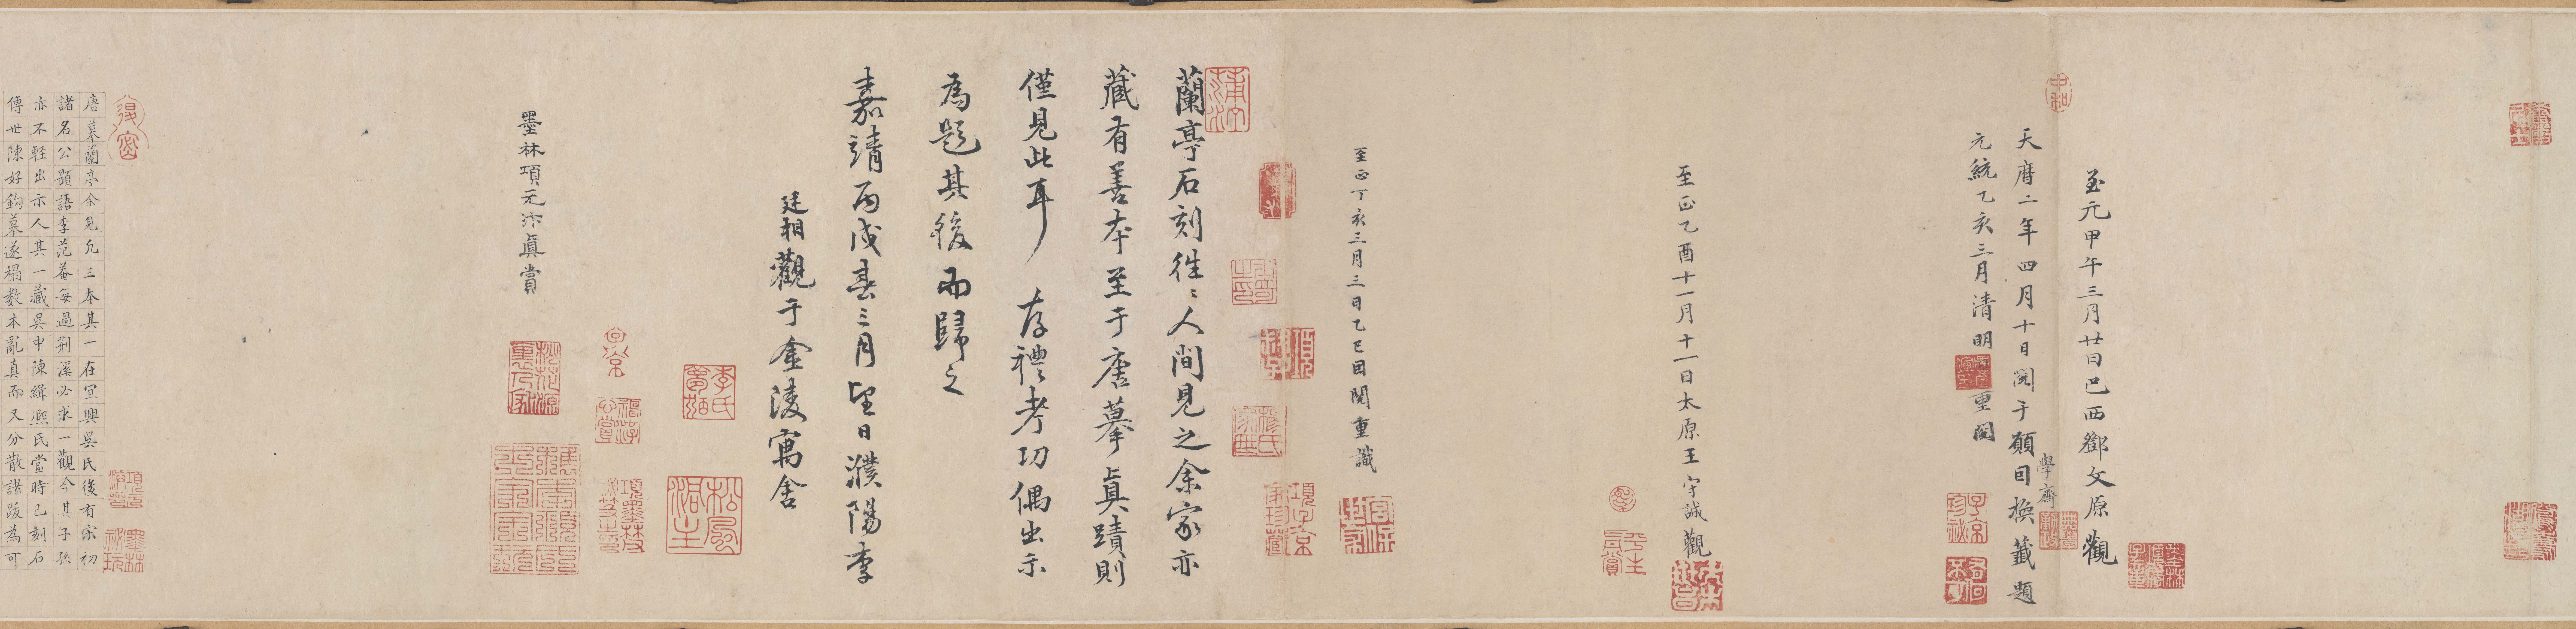 至元甲午三月廿日巴西鄧文原觀
學齋
天曆二年四月十日閱于願自換籤題
元統乙亥三月清明重閱
至正乙酉十一月十一日太原王守誠觀
至正丁亥三月三日乙巳因閱重識
蘭亭石刻徃〻人間見之余家亦
藏有善本至于唐摹真蹟則
僅見此耳存禮考功偶出示
為題其後而歸之
嘉靖丙戌春三月望日濮陽李
廷相觀于金陵寓舍
墨林項元汴真賞
唐摹蘭亭余見凡三本其一在宜興吳氏後有宋初
諸名公題語李范菴每過荊溪必求一觀今其子孫
亦不輕出示人其一藏吳中陳緝熙氏當時已刻石
傳世陳好鈎摹遂榻数本亂真而又分散諸跋為可